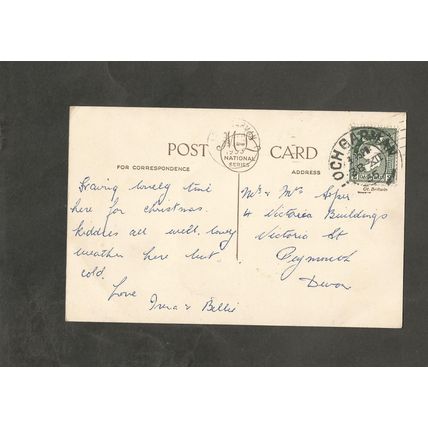 POST CARD
NATIONAL
SERIES
FOR CORRESPONDENCE
ADDRESS
Gt. Britain
LOCH GARMAN
Having lovely time
here for christmas.
kiddies all well, lovely
weather here but
cold.
Love
Irena & Billie
Mr & Mrs
4 Victoria Buildings
Victoria St
Plymouth
Devon